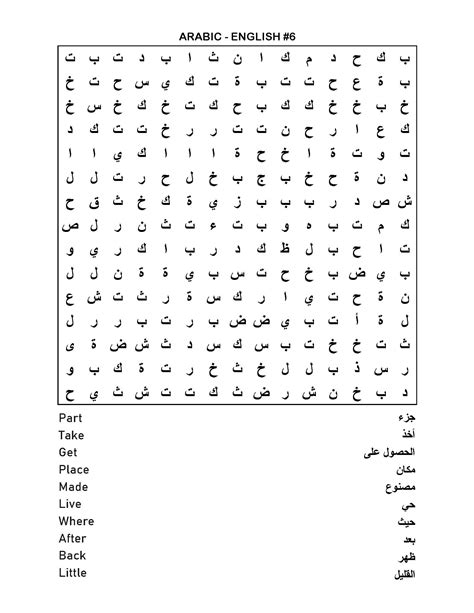 ARABIC - ENGLISH #6
ب ك ح د م ك ا ن ث ا ب د ت ب ت
ب ة ع ح ت ة ب ت ة ت ك ي س ح ت خ
خ ب خ ك ك خ ب ك ح ت خ ك خ س خ
ك ع ا ر ح ن ت ت ر ر خ ت ت ك د
ت و ت ة ا خ ح ة ا ا ا ك ي ا ا
د ن ة ح خ ب ج ب خ ل ح ر ت ل ل
ش ص د ر ب ب ب ز ي ة ك خ ث ق ح
ك م ت ب ه و ب ت ء ت ث ن ر ل ص
ت ا ح ب ل ظ ك د ر ب ا ك ر ي و
ب ي ض ب خ ح ت س ب ي ة ة ن ل ل
ن ة ح ت ي ا ر ك س ة ر ث ت ش ع
ل ة أ ت ب ي ض ض ب ر ب ت ر ر ل
ث ت خ خ ت ب س ك س د ث ش ض ة ى
ر س ذ ب ل ل خ ث خ ر ت ة ك ب و
د ب خ ن ش ر ض ث ك ت ت ش ث ي ح
Part جزء
Take أخذ
Get الحصول على
Place مكان
Made مصنوع
Live حي
Where حيث
After بعد
Back ظهر
Little القليل